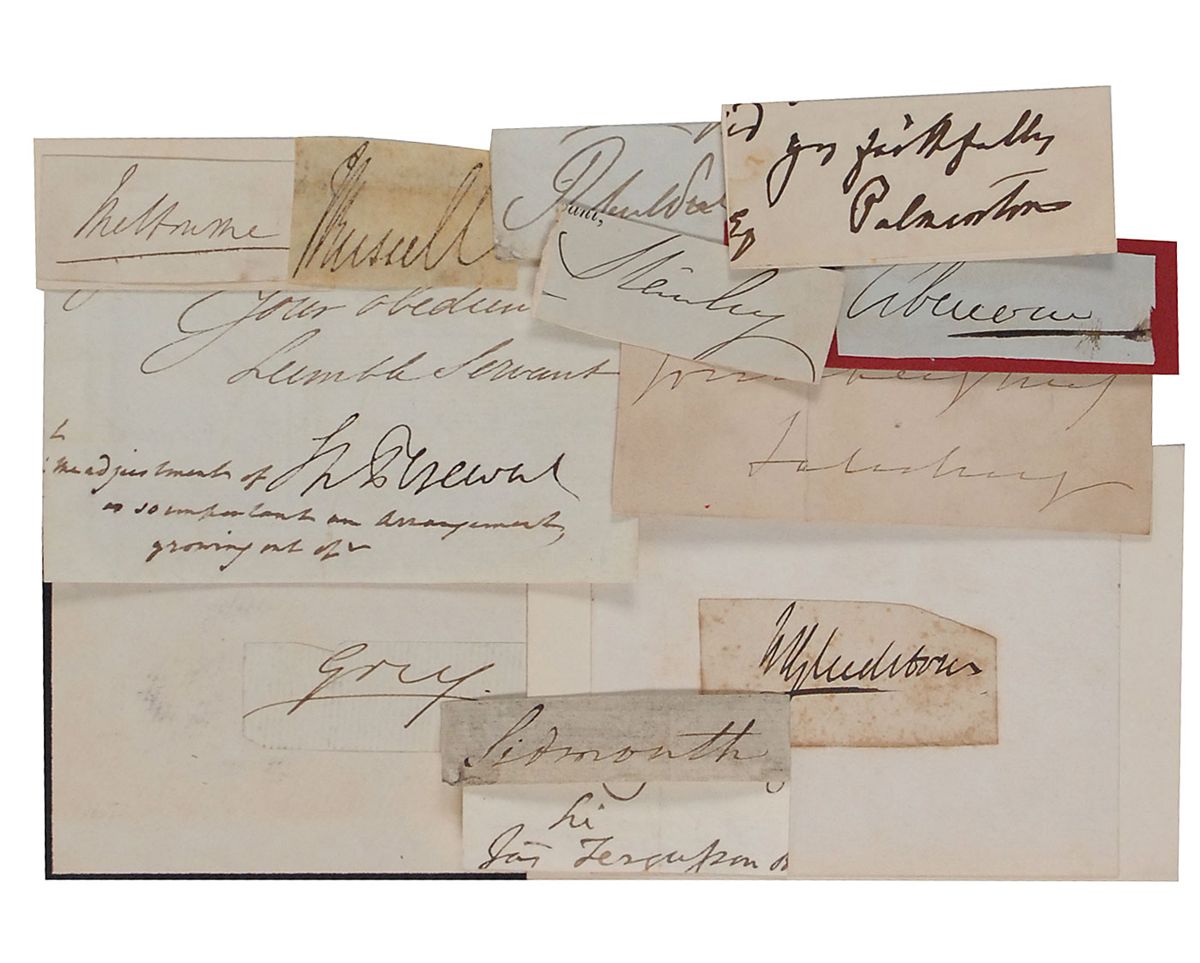 Melbourne
Russell
yrs faithfully
Palmerston
Bart,
Stanley
Aberdeen
Your obedient
humble Servant
Sp Perceval
the adjustment of
so important an Arrangement,
growing out of
Salisbury
Grey.
WEGladstone
Sidmouth
Jas Fergusson